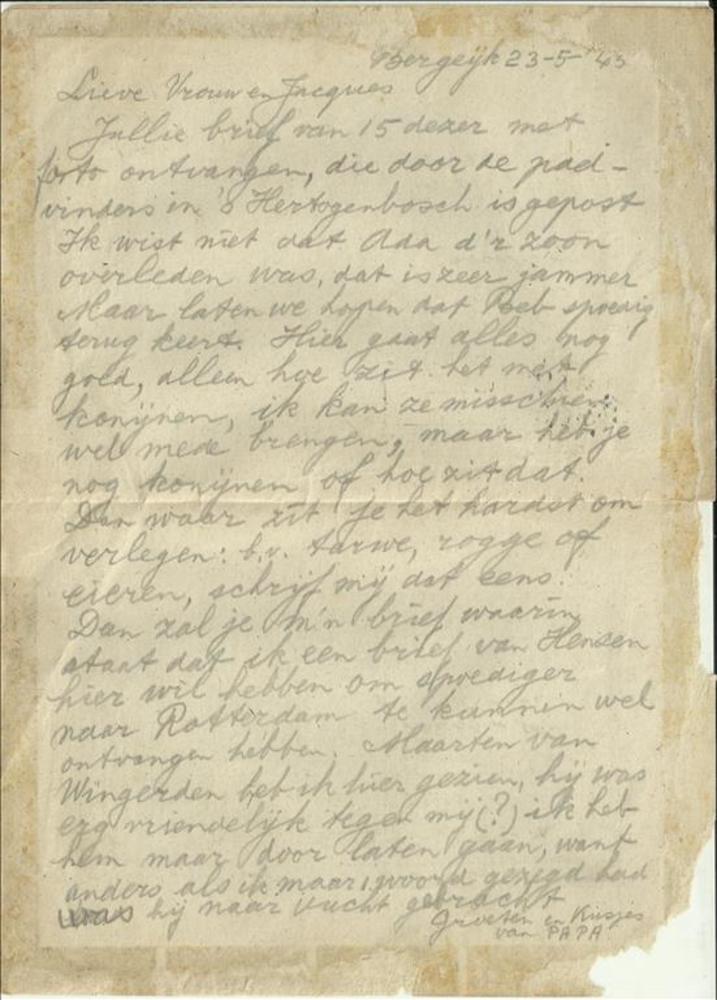 Bergeijk 23-5-'45
Lieve Vrouw en Jacques
Jullie brief van 15 dezer met
foto ontvangen, die door de pad-
vinders in 's Hertogenbosch is gepost
Ik wist niet dat Ada d'r zoon
overleden was, dat is zeer jammer
Maar laten we hopen dat Beb spoedig
terug keert. Hier gaat alles nog
goed, alleen hoe zit het met
konijnen, ik kan ze misschien
wel mede brengen, maar heb je
nog konijnen of hoe zit dat.
Dan waar zit je het hardst om
verlegen: b.v. tarwe, rogge of
eieren, schrijf mij dat eens.
Dan zal je m'n brief waarin
staat dat ik een brief van Hensen
hier wil hebben om spoediger
naar Rotterdam te kunnen wel
ontvangen hebben. Maarten van
Wingerden heb ik hier gezien, hij was
erg vriendelijk tegen mij (?) ik heb
hem maar door laten gaan, want
anders als ik maar 1 woord gezegd had
was hij naar Vucht gebracht
Groeten en Kusjes
van PAPA